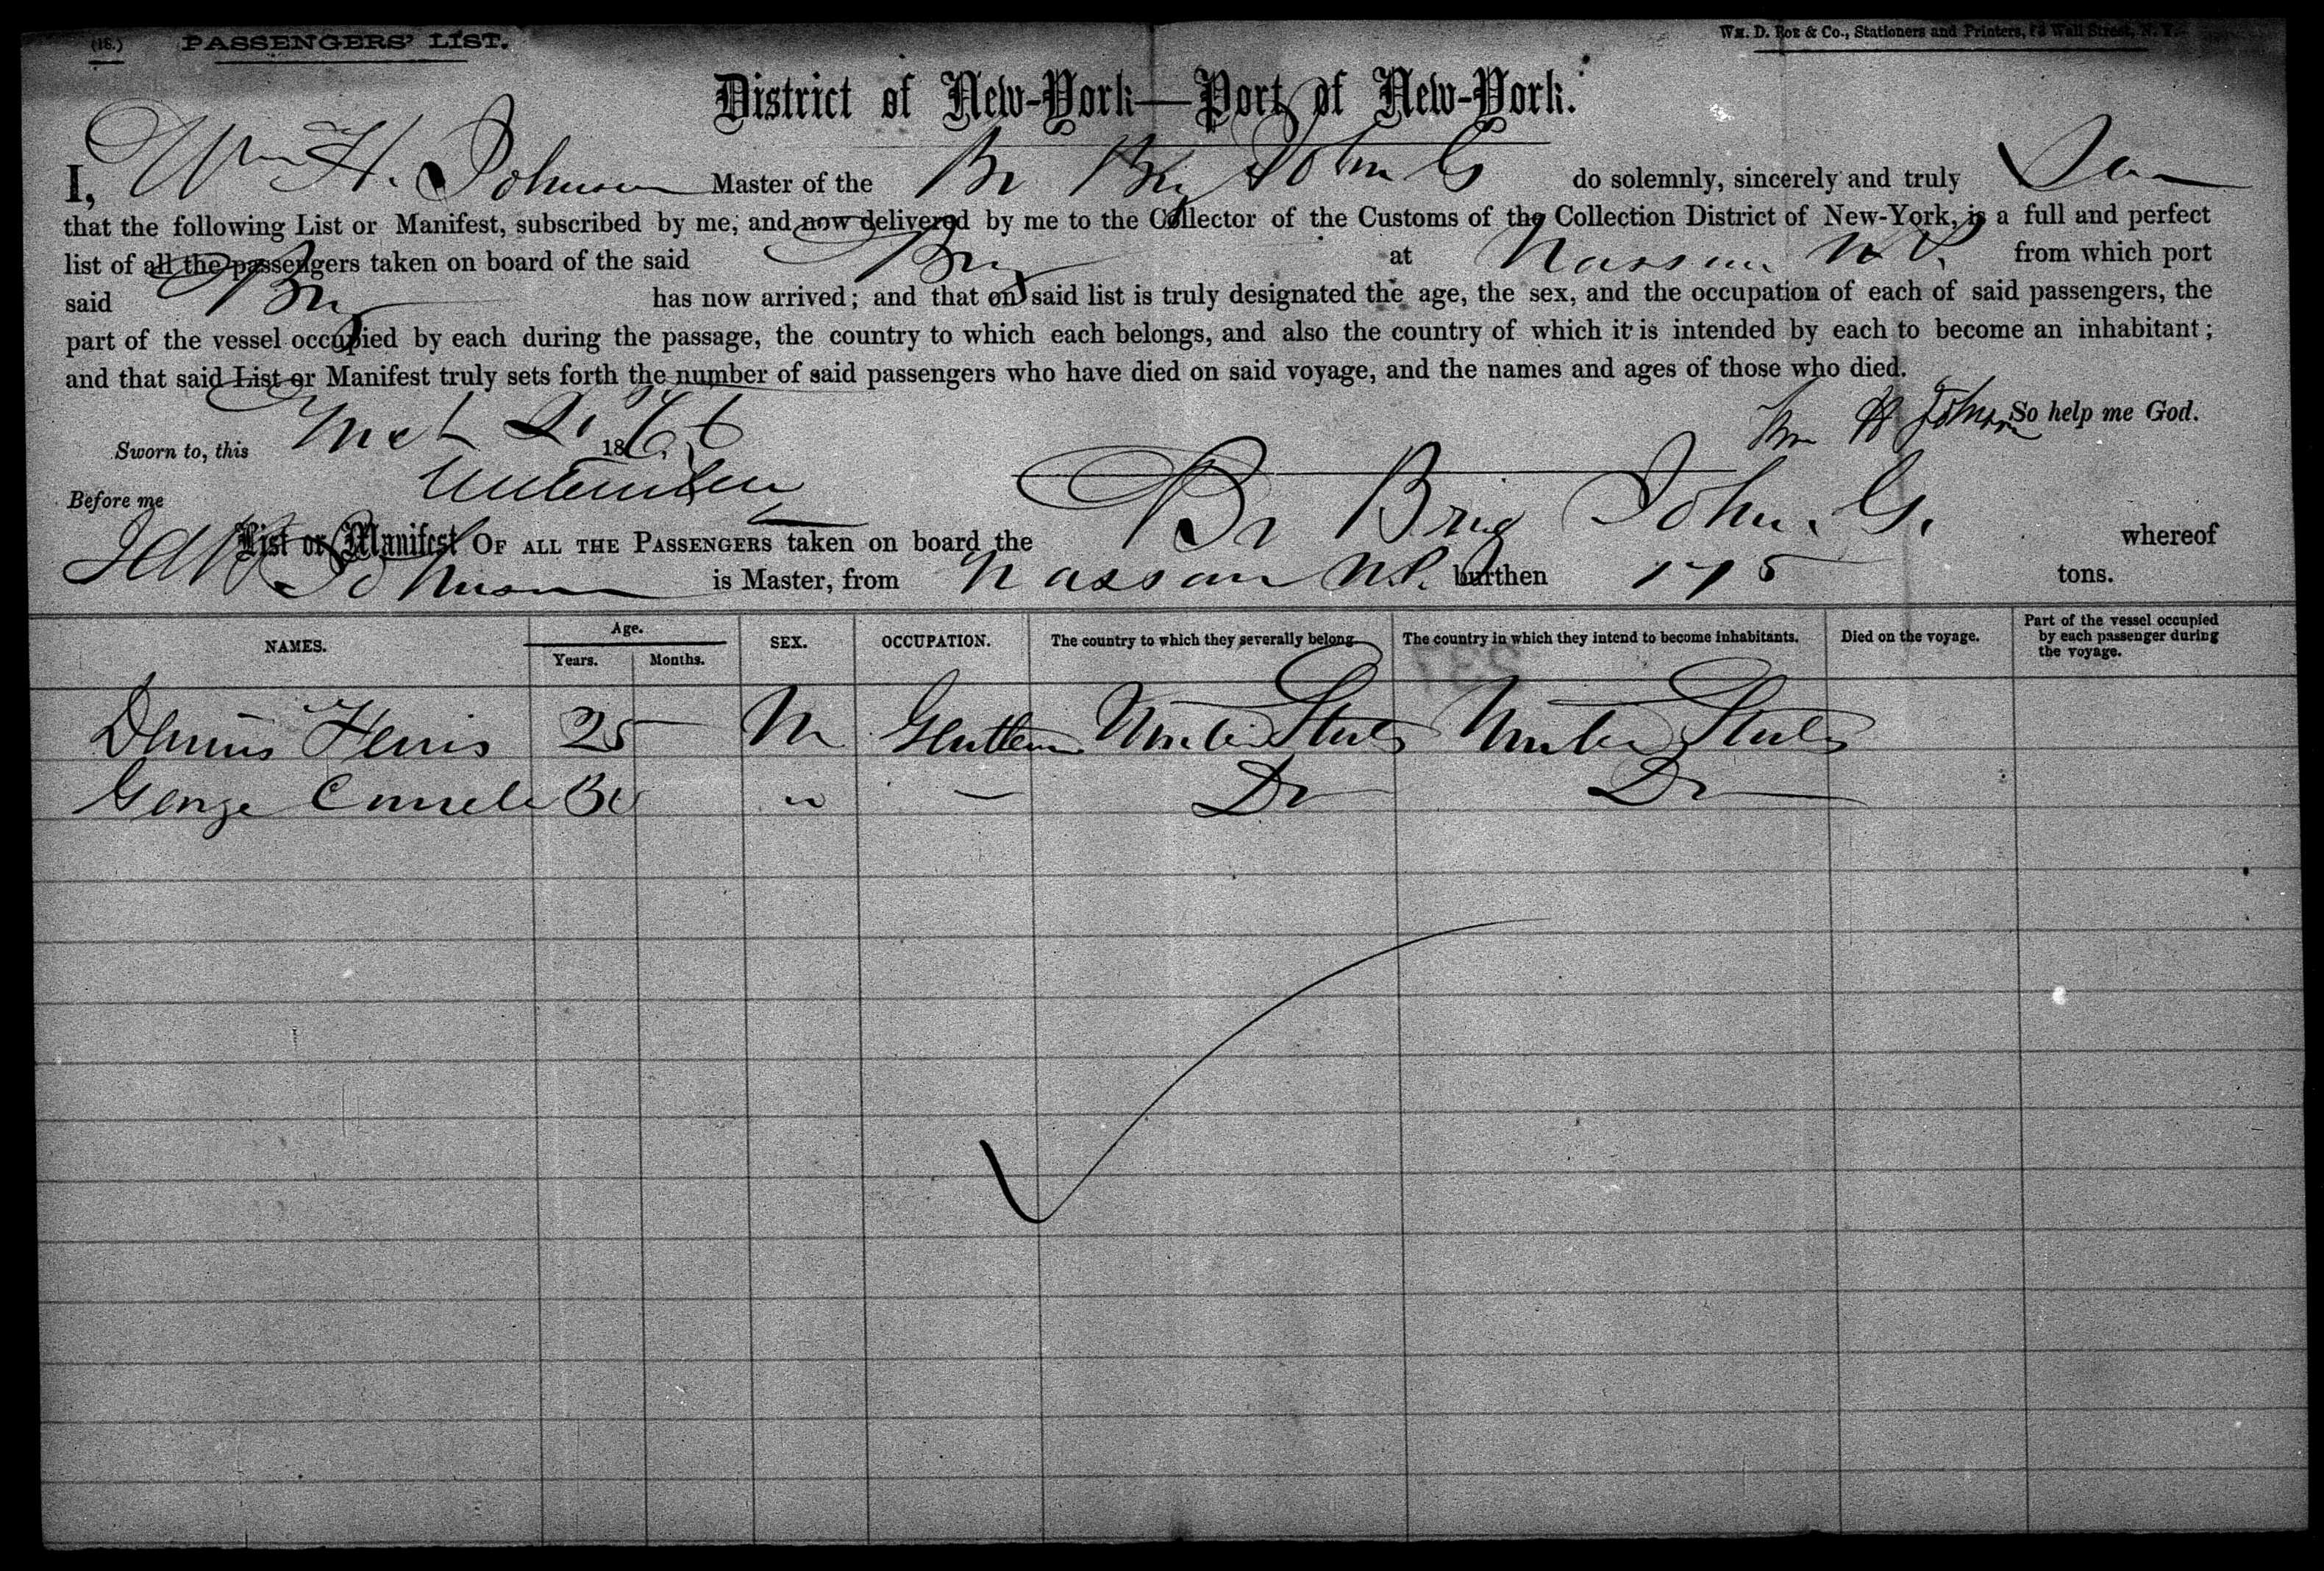 (18.) PASSENGERS' LIST. Wm. D. Roe & Co., Stationers and Printers, Wall Street, N. Y.
District of New-York—Port of New-York.
I, Wm H. Johnson Master of the Br Brig John G do solemnly, sincerely and truly
that the following List or Manifest, subscribed by me, and now delivered by me to the Collector of the Customs of the Collection District of New-York, is a full and perfect
list of all the passengers taken on board of the said Brig at Nassau N.P. from which port
said Brig has now arrived; and that on said list is truly designated the age, the sex, and the occupation of each of said passengers, the
part of the vessel occupied by each during the passage, the country to which each belongs, and also the country of which it is intended by each to become an inhabitant;
and that said List or Manifest truly sets forth the number of said passengers who have died on said voyage, and the names and ages of those who died.
Wm H Johnson So help me God.
Sworn to, this 1866
Before me
List or Manifest OF ALL THE PASSENGERS taken on board the Br Brig John. G. whereof
Johnson is Master, from Nassau N.P. burthen 175 tons.
NAMES. Age. Years. Months. SEX. OCCUPATION. The country to which they severally belong. The country in which they intend to become inhabitants. Died on the voyage. Part of the vessel occupied by each passenger during the voyage.
25 M United States United States
George Do Do